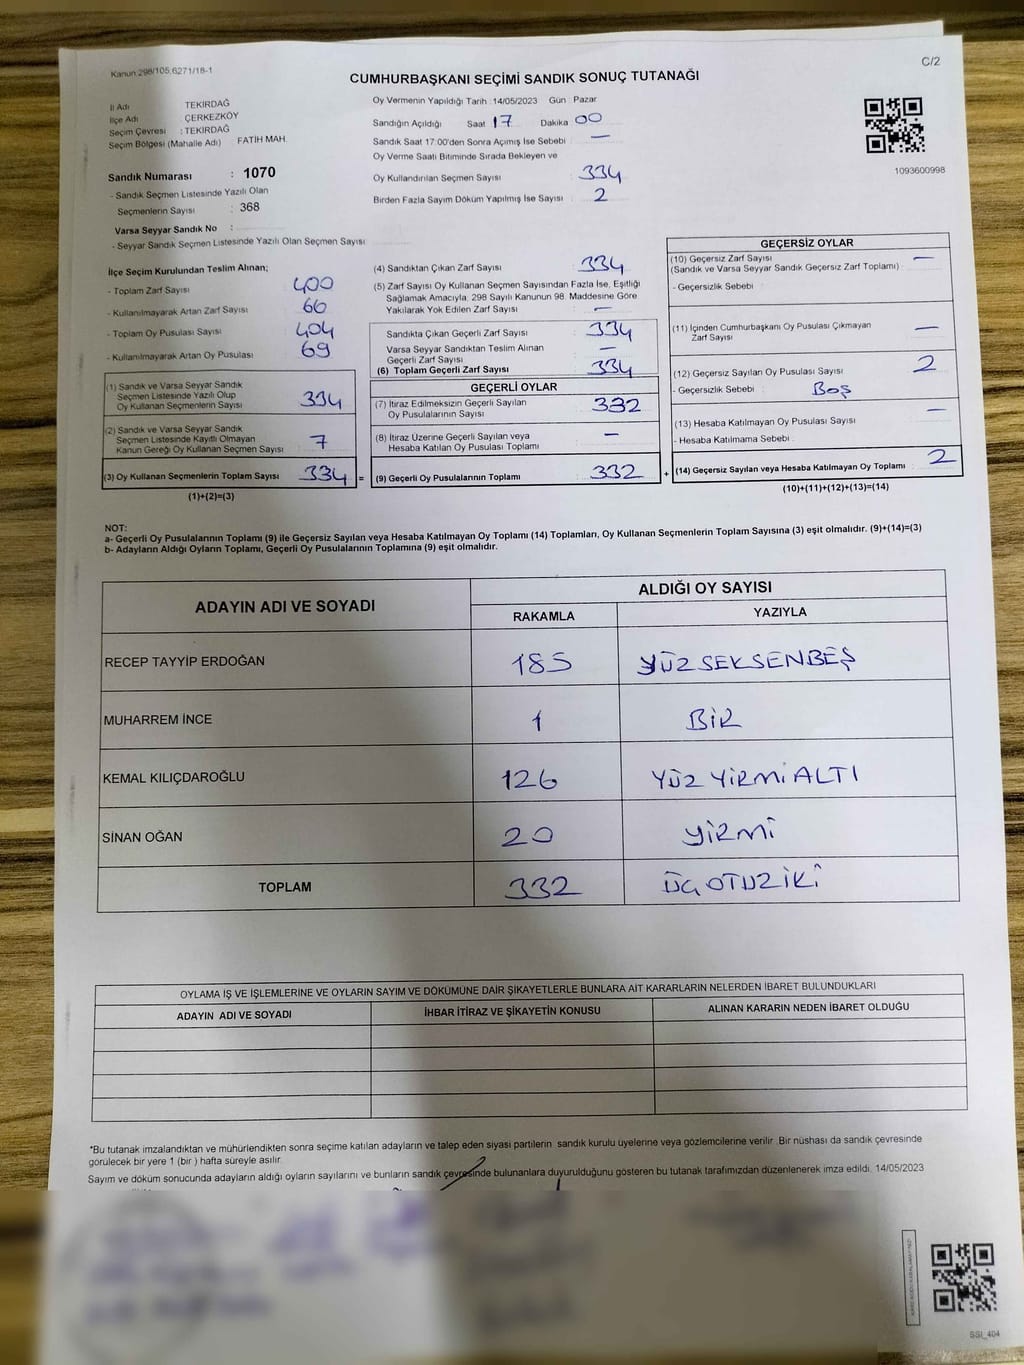 Kanun:298/105,6271/18-1
C/2
CUMHURBAŞKANI SEÇİMİ SANDIK SONUÇ TUTANAĞI
İl Adı TEKİRDAĞ
İlçe Adı ÇERKEZKÖY
Seçim Çevresi : TEKİRDAĞ
Seçim Bölgesi (Mahalle Adı) FATİH MAH.
Oy Vermenin Yapıldığı Tarih : 14/05/2023 Gün : Pazar
Sandığın Açıldığı Saat 17 Dakika 00
Sandık Saat 17:00'den Sonra Açımış İse Sebebi : —
Oy Verme Saati Bitiminde Sırada Bekleyen ve
Oy Kullandırılan Seçmen Sayısı 334
Birden Fazla Sayım Döküm Yapılmış İse Sayısı 2
1093600998
Sandık Numarası : 1070
- Sandık Seçmen Listesinde Yazılı Olan
Seçmenlerin Sayısı : 368
Varsa Seyyar Sandık No :
- Seyyar Sandık Seçmen Listesinde Yazılı Olan Seçmen Sayısı
İlçe Seçim Kurulundan Teslim Alınan;
- Toplam Zarf Sayısı 400
- Kullanılmayarak Artan Zarf Sayısı 66
- Toplam Oy Pusulası Sayısı 404
- Kullanılmayarak Artan Oy Pusulası 69
(1) Sandık ve Varsa Seyyar Sandık
Seçmen Listesinde Yazılı Olup
Oy Kullanan Seçmenlerin Sayısı 334
(2) Sandık ve Varsa Seyyar Sandık
Seçmen Listesinde Kayıtlı Olmayan
Kanun Gereği Oy Kullanan Seçmen Sayısı 7
(3) Oy Kullanan Seçmenlerin Toplam Sayısı 334 =
(1)+(2)=(3)
(4) Sandıktan Çıkan Zarf Sayısı 334
(5) Zarf Sayısı Oy Kullanan Seçmen Sayısından Fazla İse, Eşitliği
Sağlamak Amacıyla, 298 Sayılı Kanunun 98. Maddesine Göre
Yakılarak Yok Edilen Zarf Sayısı —
Sandıkta Çıkan Geçerli Zarf Sayısı 334
Varsa Seyyar Sandıktan Teslim Alınan
Geçerli Zarf Sayısı —
(6) Toplam Geçerli Zarf Sayısı 334
GEÇERLİ OYLAR
(7) İtiraz Edilmeksizin Geçerli Sayılan
Oy Pusulalarının Sayısı 332
(8) İtiraz Üzerine Geçerli Sayılan veya
Hesaba Katılan Oy Pusulası Toplamı —
(9) Geçerli Oy Pusulalarının Toplamı 332 +
GEÇERSİZ OYLAR
(10) Geçersiz Zarf Sayısı —
(Sandık ve Varsa Seyyar Sandık Geçersiz Zarf Toplamı)
- Geçersizlik Sebebi
(11) İçinden Cumhurbaşkanı Oy Pusulası Çıkmayan
Zarf Sayısı —
(12) Geçersiz Sayılan Oy Pusulası Sayısı 2
- Geçersizlik Sebebi : Boş
(13) Hesaba Katılmayan Oy Sayısı —
- Hesaba Katılmama Sebebi :
(14) Geçersiz Sayılan veya Hesaba Katılmayan Oy Toplamı 2
(10)+(11)+(12)+(13)=(14)
NOT:
a- Geçerli Oy Pusulalarının Toplamı (9) ile Geçersiz Sayılan veya Hesaba Katılmayan Oy Toplamı (14) Toplamları, Oy Kullanan Seçmenlerin Toplam Sayısına (3) eşit olmalıdır. (9)+(14)=(3)
b- Adayların Aldığı Oyların Toplamı, Geçerli Oy Pusulalarının Toplamına (9) eşit olmalıdır.
ADAYIN ADI VE SOYADI
ALDIĞI OY SAYISI
RAKAMLA YAZIYLA
RECEP TAYYİP ERDOĞAN 185 YÜZ SEKSENBEŞ
MUHARREM İNCE 1 BİR
KEMAL KILIÇDAROĞLU 126 YÜZ YİRMİ ALTI
SİNAN OĞAN 20 YİRMİ
TOPLAM 332 ÜÇ OTUZ İKİ
OYLAMA İŞ VE İŞLEMLERİNE VE OYLARIN SAYIM VE DÖKÜMÜNE DAİR ŞİKAYETLERLE BUNLARA AİT KARARLARIN NELERDEN İBARET BULUNDUKLARI
ADAYIN ADI VE SOYADI İHBAR İTİRAZ VE ŞİKAYETİN KONUSU ALINAN KARARIN NEDEN İBARET OLDUĞU
*Bu tutanak imzalandıktan ve mühürlendikten sonra seçime katılan adayların ve talep eden siyasi partilerin sandık kurulu üyelerine veya gözlemcilerine verilir .Bir nüshası da sandık çevresinde
görülecek bir yere 1 (bir ) hafta süreyle asılır.
Sayım ve döküm sonucunda adayların aldığı oyların sayılarını ve bunların sandık çevresinde bulunanlara duyurulduğunu gösteren bu tutanak tarafımızdan düzenlenerek imza edildi. 14/05/2023
SSI_404